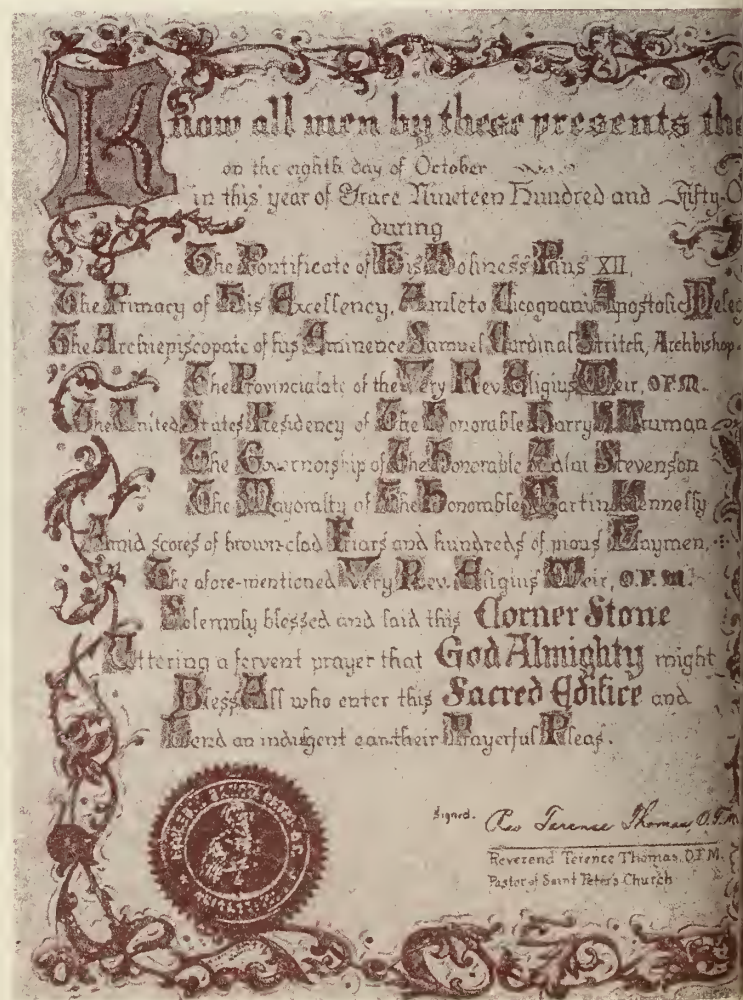 Know all men by these presents th
on the eighth day of October
in this year of Grace Nineteen Hundred and Fifty-O
during
The Pontificate of His Holiness Pius XII,
The Primacy of His Excellency, Amleto Cicognani Apostolic Deleg
The Archiepiscopate of his Eminence Samuel Cardinal Stritch, Archbishop
The Provincialate of the Very Rev. Eligius Weir, O.F.M.
The United States Presidency of The Honorable Harry S Truman
The Governorship of The Honorable Adlai Stevenson
The Mayoralty of The Honorable Martin Kennelly
Amid scores of brown-clad Friars and hundreds of pious Laymen,
The afore-mentioned Very Rev. Eligius Weir, O.F.M.
Solemnly blessed and laid this Corner Stone
Uttering a fervent prayer that God Almighty might
Bless All who enter this Sacred Edifice and
Lend an indulgent ear their Prayerful Pleas.
Signed. Rev Terence Thomas, O.F.M
Reverend Terence Thomas, O.F.M.
Pastor of Saint Peter's Church